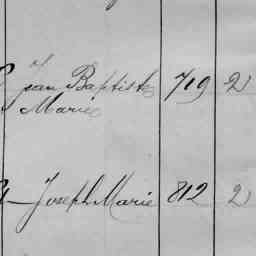 Jean Baptiste 719 2
Marie
Joseph Marie 812 2